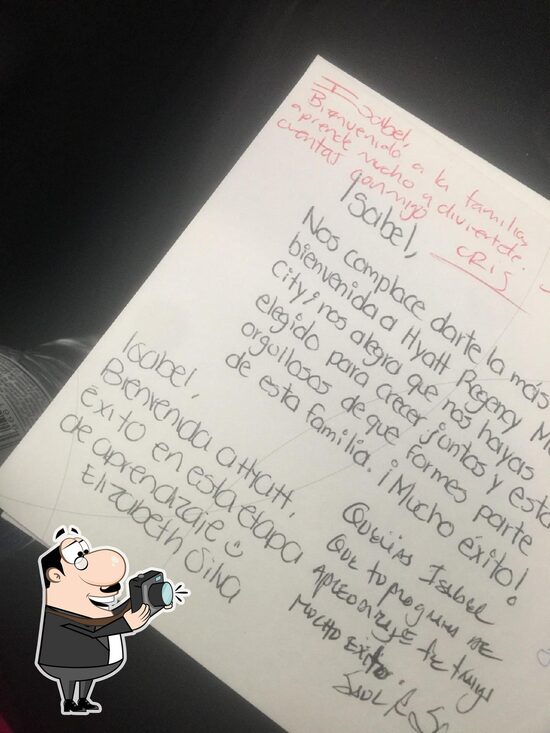 Isabel,
Bienvenido a la familia,
aprende mucho y diviertete.
cuentas conmigo
CRIS
Isabel,
Nos complace darte la más
bienvenida a Hyatt Regency
City; nos alegra que nos hayas
elegido para crecer juntos y
orgullosos de que formes parte
de esta familia. ¡Mucho éxito!
Isabel,
Bienvenida a Hyatt,
éxito en esta etapa
de aprendizaje
Elizabeth Silva
Isabel
Que tu programa de
aprendizaje te traiga
mucho éxito.